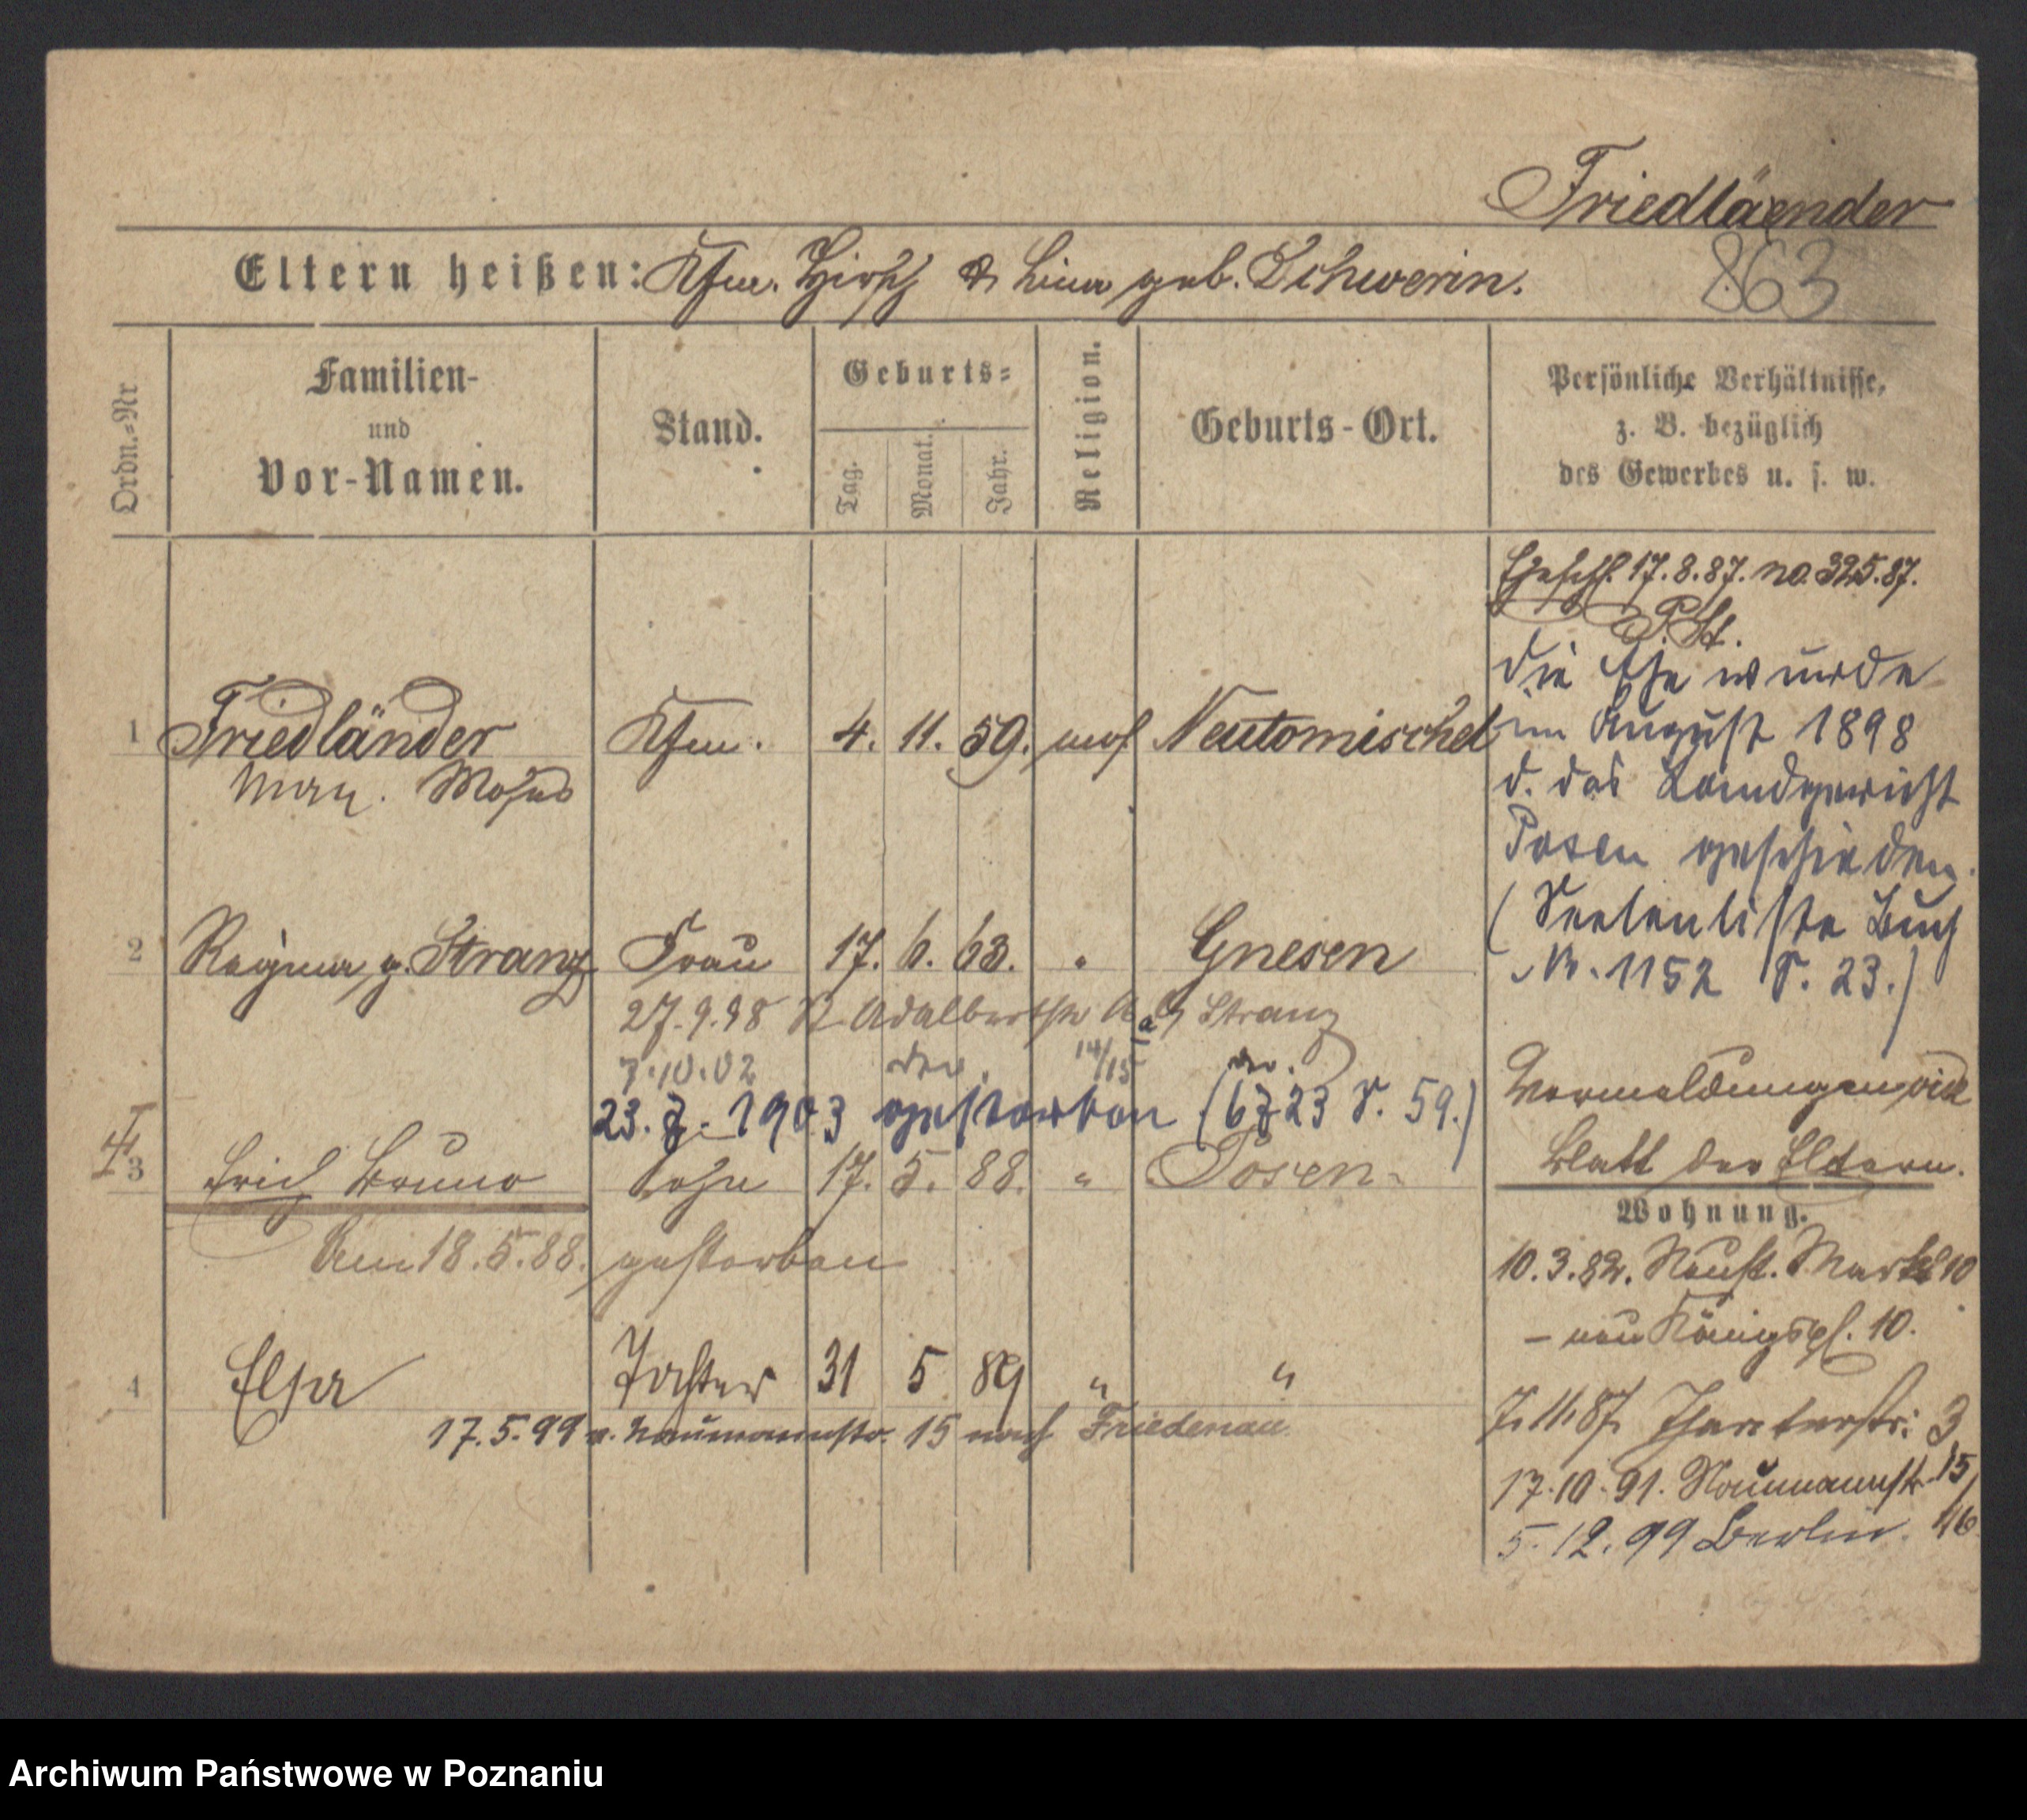 Friedläender
863
Eltern heißen: Kfm. Hirsch & Lina geb. Schwerin.
Ordn.=Nr
Familien-
und
Vor-Namen.
Stand.
Geburts=
Tag.
Monat.
Jahr.
Religion.
Geburts-Ort.
Persönliche Verhältnisse,
z. B. bezüglich
des Gewerbes u. s. w.
Ehesch. 17.8.87. no. 325.87.
P. St.
die Ehe wurde
im August 1898
d. das Landgericht
Posen geschieden.
(Seelenliste Buch
Nr. 1152 S. 23.)
1 Friedländer Kfm. 4. 11. 59. mos Neutomischel
Moses
2 Regina g. Stranz Frau 17. 6. 63. " Gnesen
27.9.98 St Adalbertstr Stranz
7.10.02 14/15
23. 7. 1903 gestorben (6723 S. 59.)
Vermeldungen vide
Blatt der Eltern.
† 3 Erich Bruno Sohn 17. 5. 88. " Posen
Am 18.5.88. gestorben
Wohnung.
10.3.82. Neust. Markt 10
– neu Königspl. 10.
4 Elsa Tochter 31 5 89 " "
17.5.99 v. Naumannstr. 15 nach Friedenau
7.11.87. 3
17.10.91. Naumannstr. 15/16
5.12.99 Berlin.
Archiwum Państwowe w Poznaniu